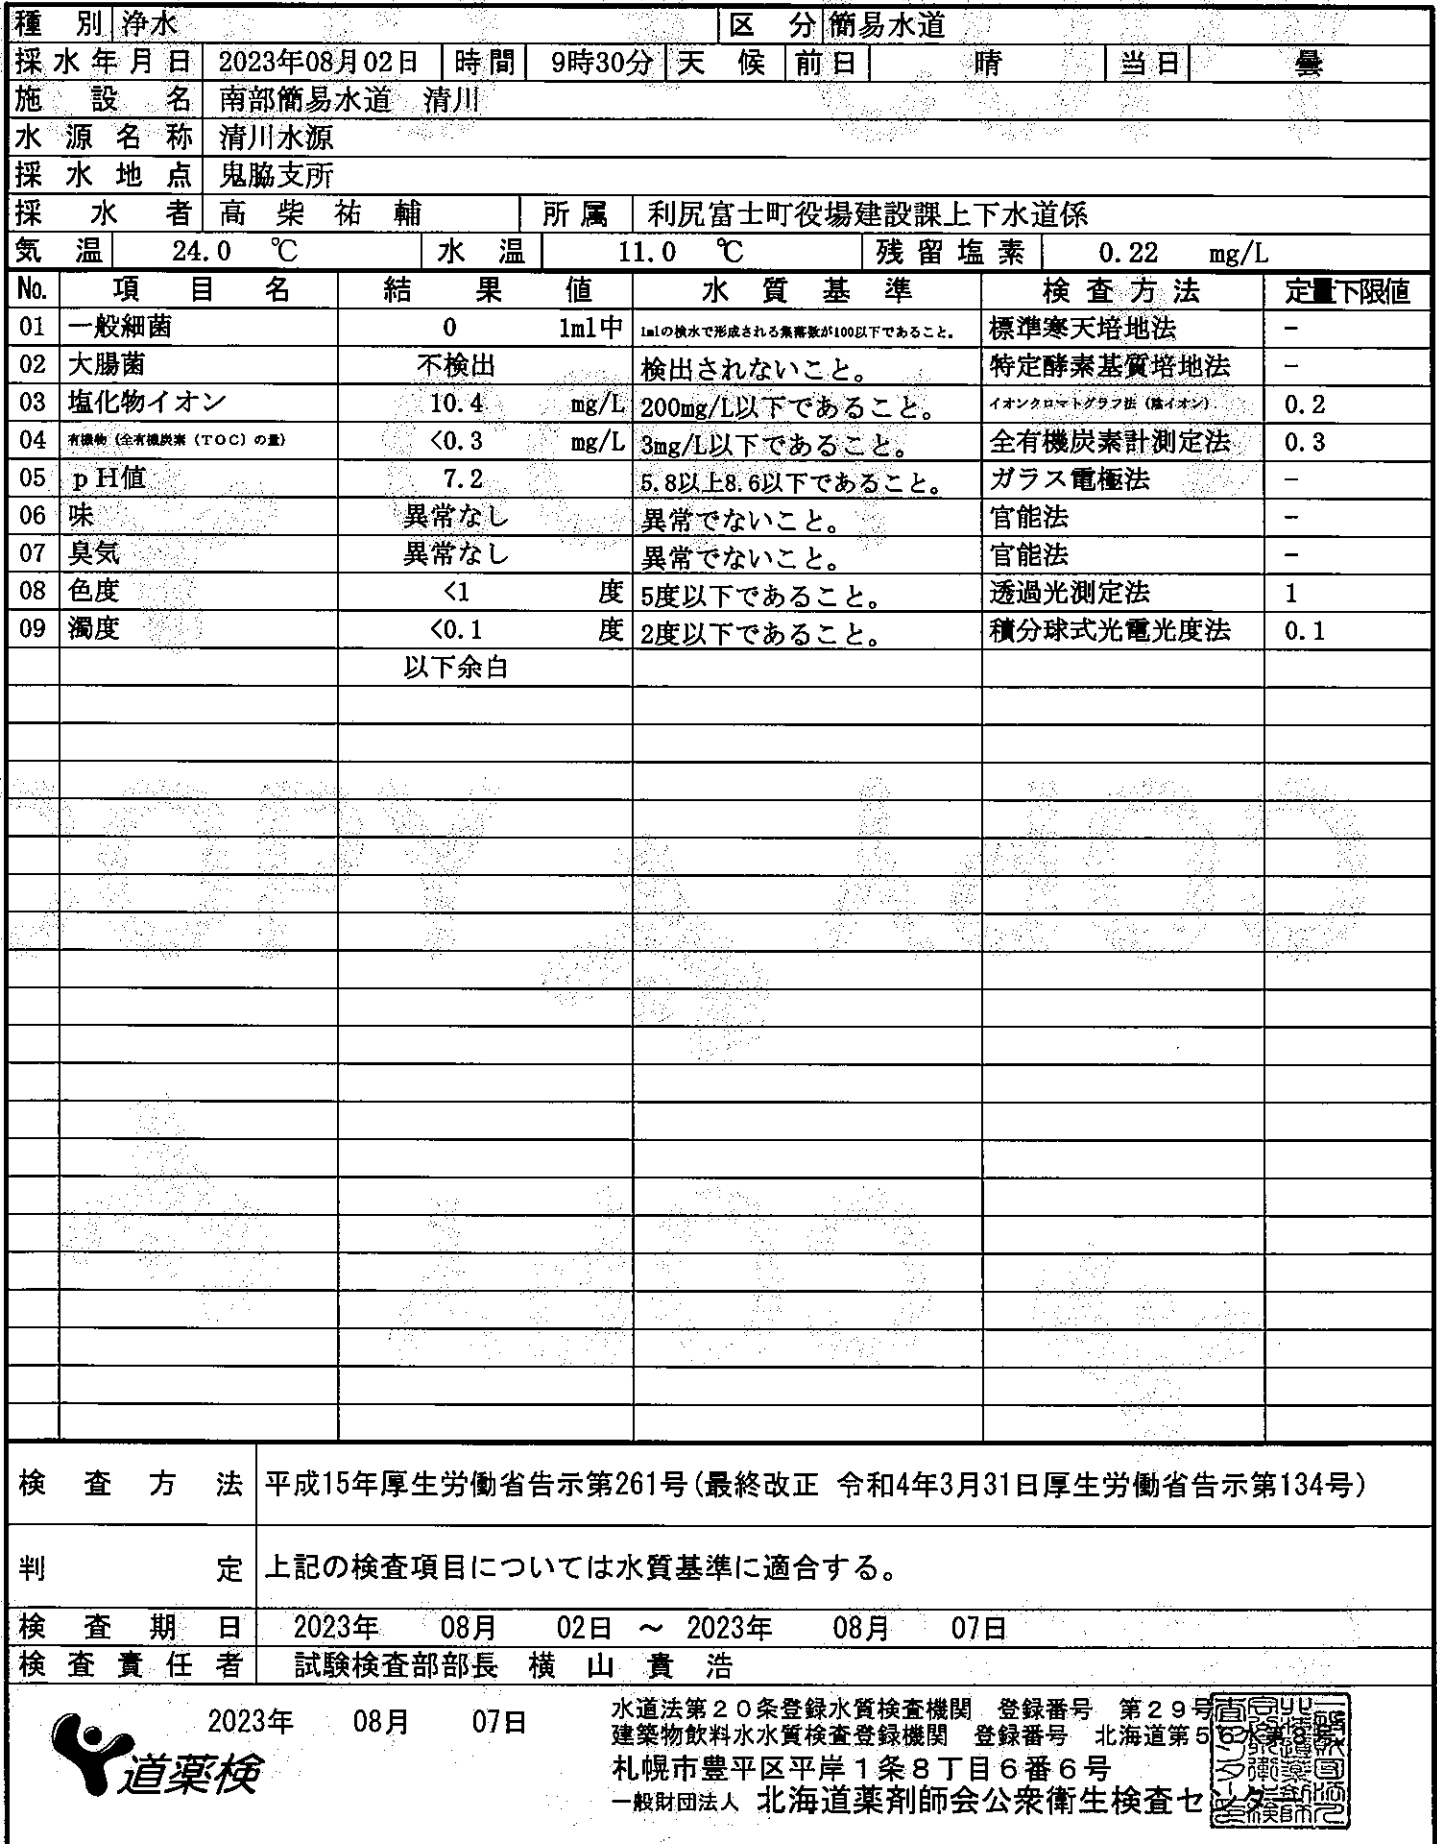 種別 浄水 区分 簡易水道
採水年月日 2023年08月02日 時間 9時30分 天候 前日 晴 当日 曇
施設名 南部簡易水道 清川
水源名称 清川水源
採水地点 鬼脇支所
採水者 高柴祐輔 所属 利尻富士町役場建設課上下水道係
気温 24.0 ℃ 水温 11.0 ℃ 残留塩素 0.22 mg/L
No. 項目名 結果値 水質基準 検査方法 定量下限値
01 一般細菌 0 1ml中 1mlの検水で形成される集落数が100以下であること。 標準寒天培地法 －
02 大腸菌 不検出 検出されないこと。 特定酵素基質培地法 －
03 塩化物イオン 10.4 mg/L 200mg/L以下であること。 イオンクロマトグラフ法（陰イオン） 0.2
04 有機物（全有機炭素（TOC）の量） <0.3 mg/L 3mg/L以下であること。 全有機炭素計測定法 0.3
05 pH値 7.2 5.8以上8.6以下であること。 ガラス電極法 －
06 味 異常なし 異常でないこと。 官能法 －
07 臭気 異常なし 異常でないこと。 官能法 －
08 色度 <1 度 5度以下であること。 透過光測定法 1
09 濁度 <0.1 度 2度以下であること。 積分球式光電光度法 0.1
以下余白
検査方法 平成15年厚生労働省告示第261号(最終改正 令和4年3月31日厚生労働省告示第134号)
判定 上記の検査項目については水質基準に適合する。
検査期日 2023年 08月 02日 ～ 2023年 08月 07日
検査責任者 試験検査部部長 横山貴浩
2023年 08月 07日
道薬検
水道法第２０条登録水質検査機関 登録番号 第２９号
建築物飲料水水質検査登録機関 登録番号 北海道第５６水第８号
札幌市豊平区平岸１条８丁目６番６号
一般財団法人 北海道薬剤師会公衆衛生検査センター